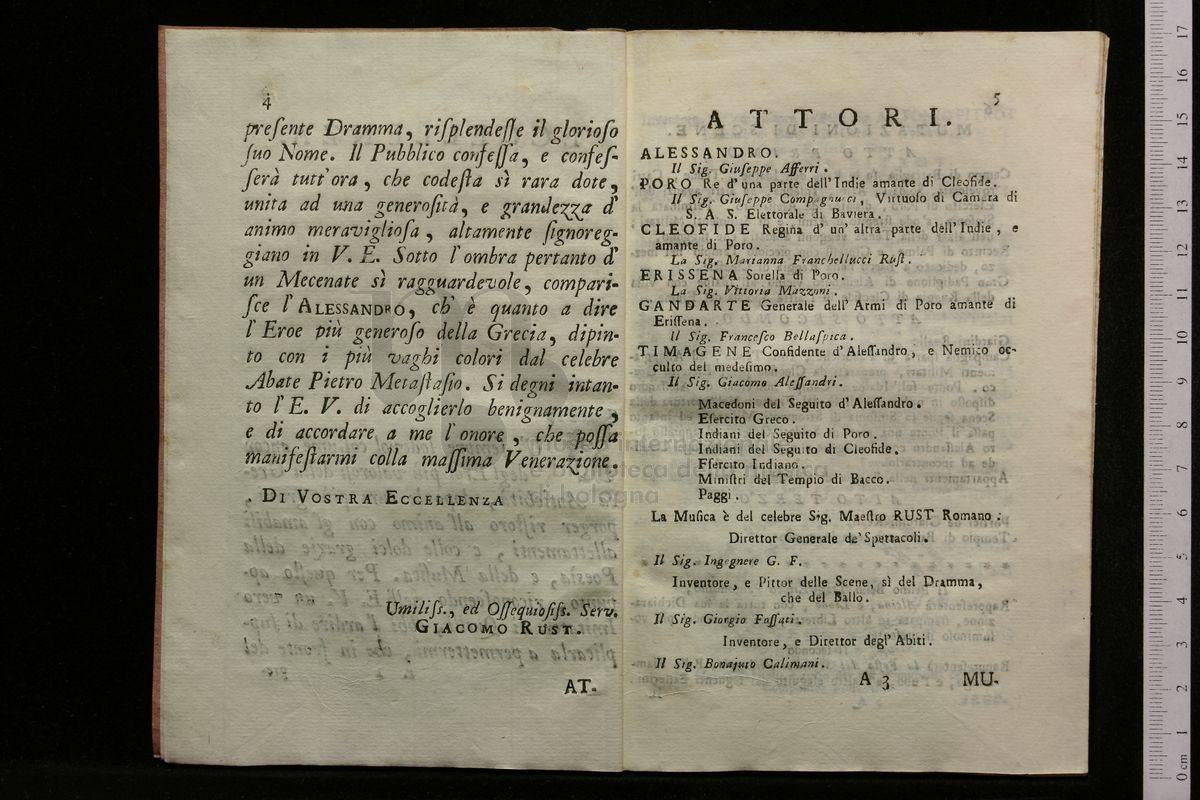 4
preſente Dramma, riſplendeſſe il glorioſo
ſuo Nome. Il Pubblico confeſſa, e confeſ-
ſerà tutt'ora, che codeſta sì rara dote,
unita ad una generoſità, e grandezza d'
animo meraviglioſa, altamente ſignoreg-
giano in V. E. Sotto l'ombra pertanto d'
un Mecenate sì ragguardevole, compari-
ſce l'ALESSANDRO, ch' è quanto a dire
l'Eroe più generoſo della Grecia, dipin-
to con i più vaghi colori dal celebre
Abate Pietro Metaſtaſio. Si degni intan-
to l'E. V. di accoglierlo benignamente,
e di accordare a me l'onore, che poſſa
manifeſtarmi colla maſſima Venerazione.
DI VOSTRA ECCELLENZA
Umiliſs., ed Oſſequioſiſs. Serv.
GIACOMO RUST.
AT-
5
ATTORI.
ALESSANDRO.
Il Sig. Giuſeppe Afferri.
PORO Re d'una parte dell'Indie amante di Cleofide.
Il Sig. Giuſeppe Compagnucci, Virtuoſo di Camera di
S. A. S. Elettorale di Baviera.
CLEOFIDE Regina d' un' altra parte dell'Indie, e
amante di Poro.
La Sig. Marianna Franchellucci Ruſt.
ERISSENA Sorella di Poro.
La Sig. Vittoria Mazzoni.
GANDARTE Generale dell' Armi di Poro amante di
Eriſſena.
Il Sig. Franceſco Bellaſpica.
TIMAGENE Confidente d'Aleſſandro, e Nemico oc-
culto del medeſimo.
Il Sig. Giacomo Aleſſandri.
Macedoni del Seguito d'Aleſſandro.
Eſercito Greco.
Indiani del Seguito di Poro.
Indiani del Seguito di Cleofide.
Eſercito Indiano.
Miniſtri del Tempio di Bacco.
Paggi.
La Muſica è del celebre Sig. Maeſtro RUST Romano.
Direttor Generale de' Spettacoli.
Il Sig. Ingegnere G. F.
Inventore, e Pittor delle Scene, sì del Dramma,
che del Ballo.
Il Sig. Giorgio Foſſati.
Inventore, e Direttor degl' Abiti.
Il Sig. Bonajuto Calimani.
A 3 MU-
0 cm 1 2 3 4 5 6 7 8 9 10 11 12 13 14 15 16 17